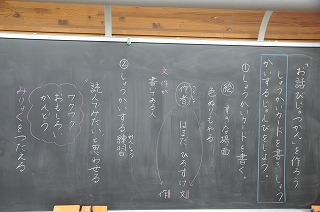 お話びじゅつかんを作ろう
しょうかいカードを書き、しょうかいするじゅんびをしよう。
①しょうかいカードを書く。
絵 すきな場面
色ぬりもやる
作者 はまだ ひろすけ 文
作
文、作が
書いてある人
②しょうかいする練習
れんしゅう
読んでみたいと思わせる
ワクワク
おもしろ
かんどう
みりょくをつたえる